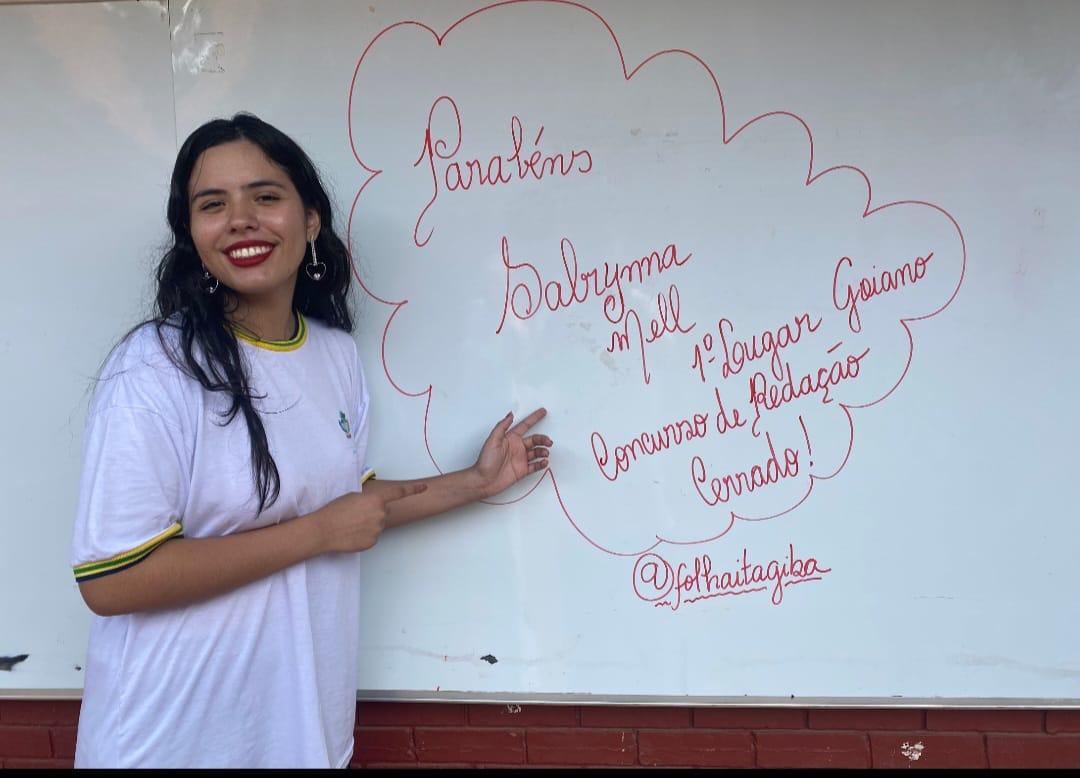 Parabéns
Sabrynna
Mell
1º Lugar Goiano
Concurso de Redação
Cerrado!
@folhaitagiba